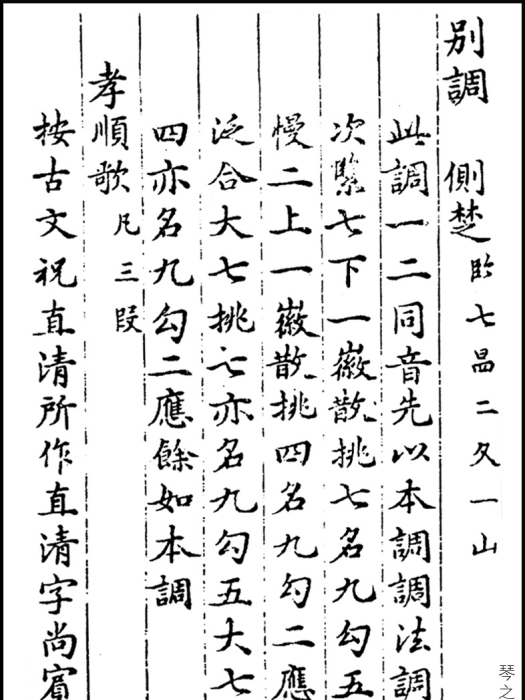 別調 側楚
此調一二同音先以本調調法調
次緊七下一徽散挑七名九勾五
慢二上一徽散挑四名九勾二應
泛合大七挑七亦名九勾五大七
四亦名九勾二應餘如本調
孝順歌 凡三段
按古文祝直清所作直清字尚賓
琴之